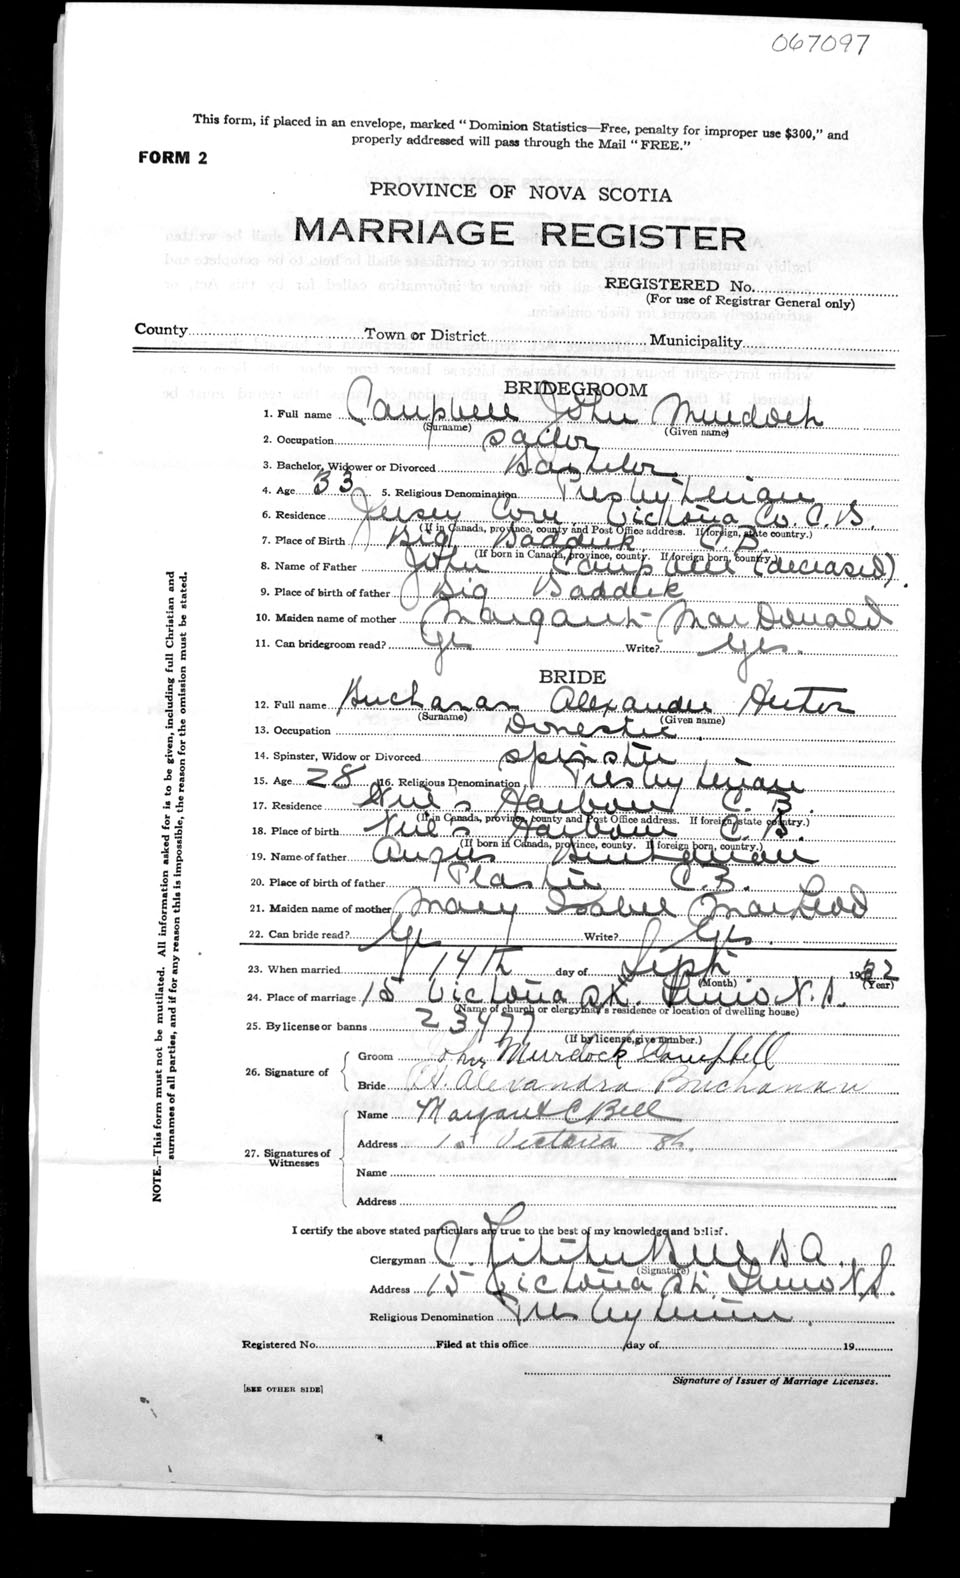 067097
This form, if placed in an envelope, marked "Dominion Statistics—Free, penalty for improper use $300," and
properly addressed will pass through the Mail "FREE."
FORM 2
PROVINCE OF NOVA SCOTIA
MARRIAGE REGISTER
REGISTERED No.
(For use of Registrar General only)
County Town or District Municipality
BRIDEGROOM
1. Full name Campbell John Murdoch
(Surname) (Given name)
2. Occupation sailor
3. Bachelor, Widower or Divorced Bachelor
4. Age 33 5. Religious Denomination Presbyterian
6. Residence Jersey Cove Victoria Co. C.B.
(If in Canada, province, county and Post Office address. If foreign, state country.)
7. Place of Birth Big Baddeck C.B.
(If born in Canada, province, county. If foreign born, country.)
8. Name of Father John Campbell (deceased).
9. Place of birth of father Big Baddeck
10. Maiden name of mother Margaret MacDonald
11. Can bridegroom read? Yes Write? Yes.
BRIDE
12. Full name Buchanan Alexander Hester
(Surname) (Given name)
13. Occupation Domestic
14. Spinster, Widow or Divorced spinster
15. Age 28 16. Religious Denomination Presbyterian
17. Residence Neil's Harbour C.B.
(If in Canada, province, county and Post Office address. If foreign, state country.)
18. Place of birth Neil's Harbour C.B.
(If born in Canada, province, county. If foreign born, country.)
19. Name of father Angus Buchanan
20. Place of birth of father Plaster C.B.
21. Maiden name of mother Mary Isabel MacLeod
22. Can bride read? Yes Write? Yes.
23. When married 14th day of Sept 1932
(Month) (Year)
24. Place of marriage 15 Victoria St. Truro N.S.
(Name of church or clergyman's residence or location of dwelling house)
25. By license or banns 23477
(If by license, give number.)
26. Signature of
Groom John Murdock Campbell
Bride H. Alexandra Buchanan
27. Signatures of
Witnesses
Name Margaret C Bell
Address 15 Victoria St.
Name
Address
I certify the above stated particulars are true to the best of my knowledge and belief.
Clergyman C. Bell B A.
(Signature)
Address 15 Victoria St. Truro N.S.
Religious Denomination Presbyterian.
Registered No. Filed at this office day of 19
Signature of Issuer of Marriage Licenses.
[SEE OTHER SIDE]
NOTE.—This form must not be mutilated. All information asked for is to be given, including full Christian and
surnames of all parties, and if for any reason this is impossible, the reason for the omission must be stated.